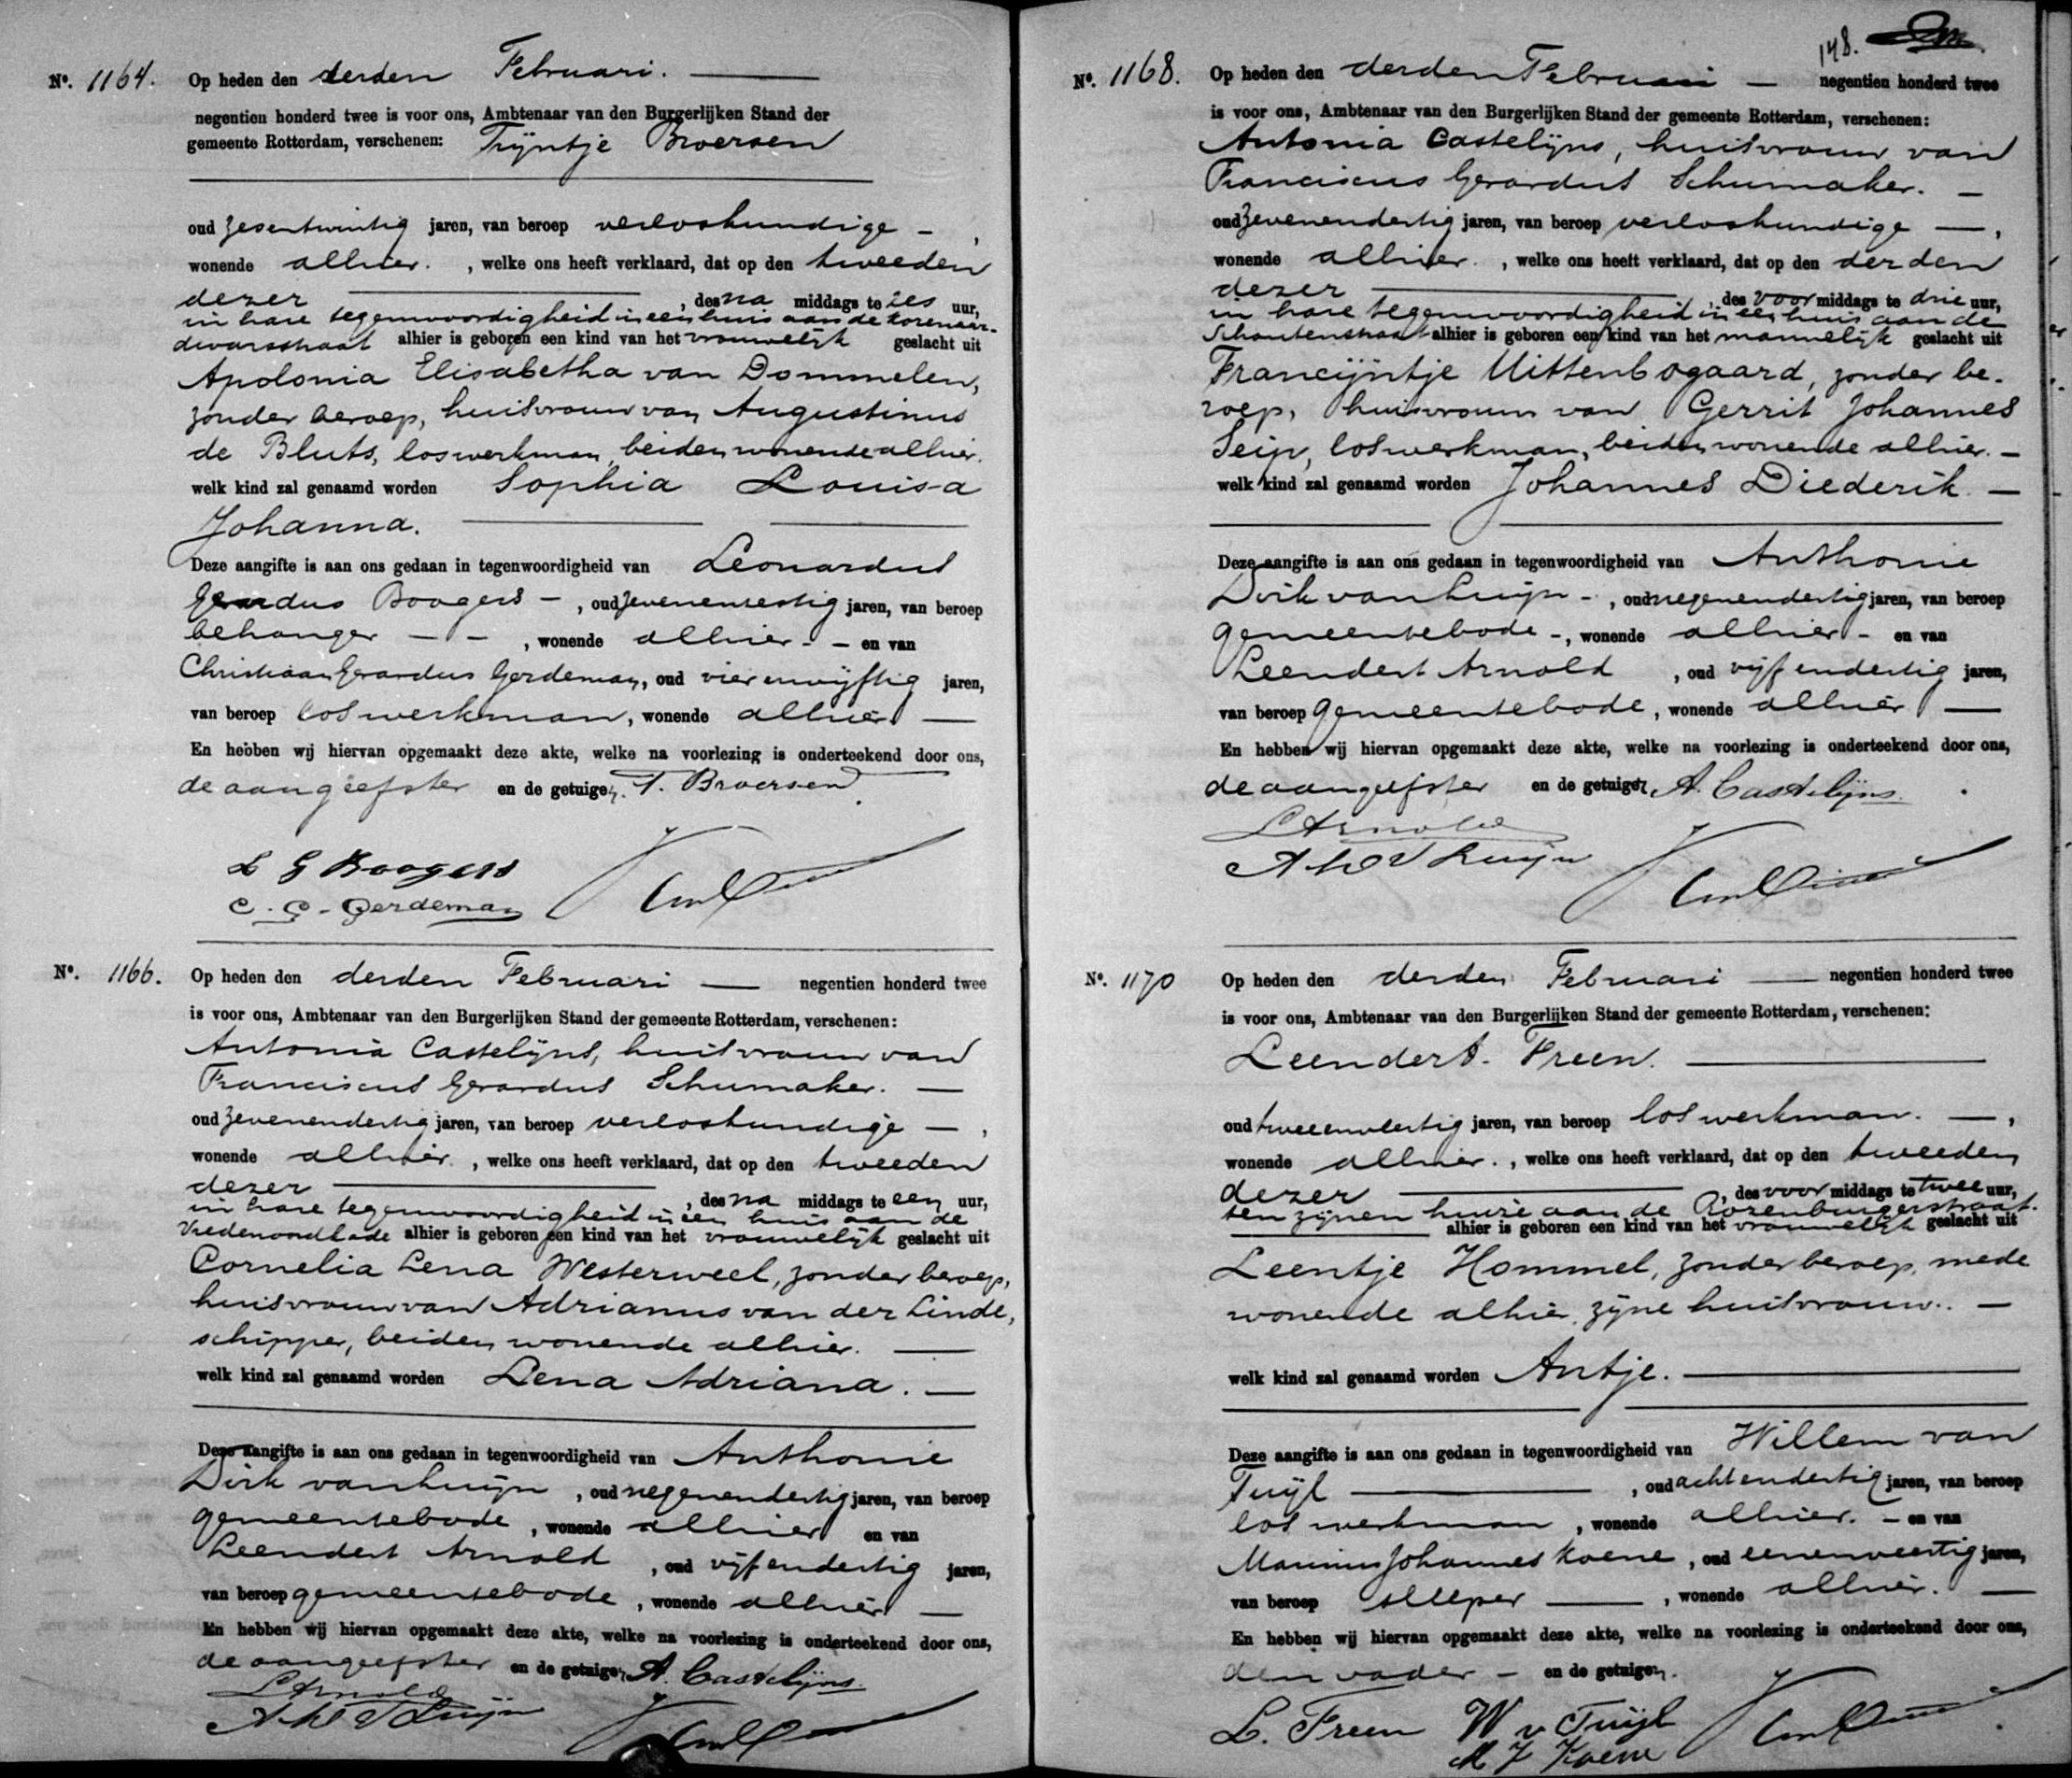 No. 1164. Op heden den derden Februari.
negentien honderd twee is voor ons, Ambtenaar van den Burgerlijken Stand der
gemeente Rotterdam, verschenen: Trijntje Broersen
oud zesentwintig jaren, van beroep verloskundige
wonende alhier. , welke ons heeft verklaard, dat op den tweeden
dezer , des na middags te zes uur,
in hare tegenwoordigheid in een huis aan de Korenaar-
dwarsstraat alhier is geboren een kind van het vrouwelijk geslacht uit
Apolonia Elisabetha van Dommelen,
zonder beroep, huisvrouw van Augustinus
de Bluts, loswerkman, beiden wonende alhier.
welk kind zal genaamd worden Sophia Louisa
Johanna.
Deze aangifte is aan ons gedaan in tegenwoordigheid van Leonardus
Gerardus Boogers - , oud zevenenzestig jaren, van beroep
behanger - - , wonende alhier - - en van
Christiaan Gerardus Gerdeman, oud vierenvijftig jaren,
van beroep loswerkman, wonende alhier
En hebben wij hiervan opgemaakt deze akte, welke na voorlezing is onderteekend door ons,
de aangeefster en de getuigen. T. Broersen
L G Boogers
C. G. Gerdeman
No. 1166. Op heden den derden Februari negentien honderd twee
is voor ons, Ambtenaar van den Burgerlijken Stand der gemeente Rotterdam, verschenen:
Antonia Castelijns, huisvrouw van
Franciscus Gerardus Schumaker.
oud zevenendertig jaren, van beroep verloskundige - ,
wonende alhier. , welke ons heeft verklaard, dat op den tweeden
dezer , des na middags te een uur,
in hare tegenwoordigheid in een huis aan de
Vredenoordkade alhier is geboren een kind van het vrouwelijk geslacht uit
Cornelia Lena Westerweel, zonder beroep,
huisvrouw van Adrianus van der Linde,
schipper, beiden wonende alhier.
welk kind zal genaamd worden Lena Adriana.
Deze aangifte is aan ons gedaan in tegenwoordigheid van Anthonie
Dirk van Luijn , oud negenendertig jaren, van beroep
gemeentebode , wonende alhier en van
Leendert Arnold , oud vijfendertig jaren,
van beroep gemeentebode , wonende alhier
En hebben wij hiervan opgemaakt deze akte, welke na voorlezing is onderteekend door ons,
de aangeefster en de getuigen, A. Castelijns.
L Arnold
148.
No. 1168. Op heden den derden Februari - negentien honderd twee
is voor ons, Ambtenaar van den Burgerlijken Stand der gemeente Rotterdam, verschenen:
Antonia Castelijns, huisvrouw van
Franciscus Gerardus Schumaker. -
oud zevenendertig jaren, van beroep verloskundige - ,
wonende alhier. , welke ons heeft verklaard, dat op den derden
dezer , des voor middags te drie uur,
in hare tegenwoordigheid in een huis aan de
Schoutenstraat alhier is geboren een kind van het mannelijk geslacht uit
Francijntje Uittenbogaard, zonder be-
roep, huisvrouw van Gerrit Johannes
Seip, loswerkman, beiden wonende alhier. -
welk kind zal genaamd worden Johannes Diederik -
Deze aangifte is aan ons gedaan in tegenwoordigheid van Anthonie
Dirk van Luijn - , oud negenendertig jaren, van beroep
gemeentebode -, wonende alhier - en van
Leendert Arnold , oud vijfendertig jaren,
van beroep gemeentebode , wonende alhier
En hebben wij hiervan opgemaakt deze akte, welke na voorlezing is onderteekend door ons,
de aangeefster en de getuigen A. Castelijns.
L Arnold
No. 1170 Op heden den derden Februari negentien honderd twee
is voor ons, Ambtenaar van den Burgerlijken Stand der gemeente Rotterdam, verschenen:
Leendert Freen.
oud tweeenveertig jaren, van beroep loswerkman. - ,
wonende alhier. , welke ons heeft verklaard, dat op den tweeden
dezer , des voor middags te twee uur,
ten zijnen huize aan de Rozenburgerstraat.
alhier is geboren een kind van het vrouwelijk geslacht uit
Leentje Hommel, zonder beroep, mede
wonende alhier, zijne huisvrouw. -
welk kind zal genaamd worden Antje.
Deze aangifte is aan ons gedaan in tegenwoordigheid van Willem van
Tuijl , oud achtendertig jaren, van beroep
loswerkman , wonende alhier. - en van
Marinus Johannes Koene , oud eenenveertig jaren,
van beroep sleeper , wonende alhier.
En hebben wij hiervan opgemaakt deze akte, welke na voorlezing is onderteekend door ons,
den vader - en de getuigen.
L. Freen W v Tuijl
M J Koene